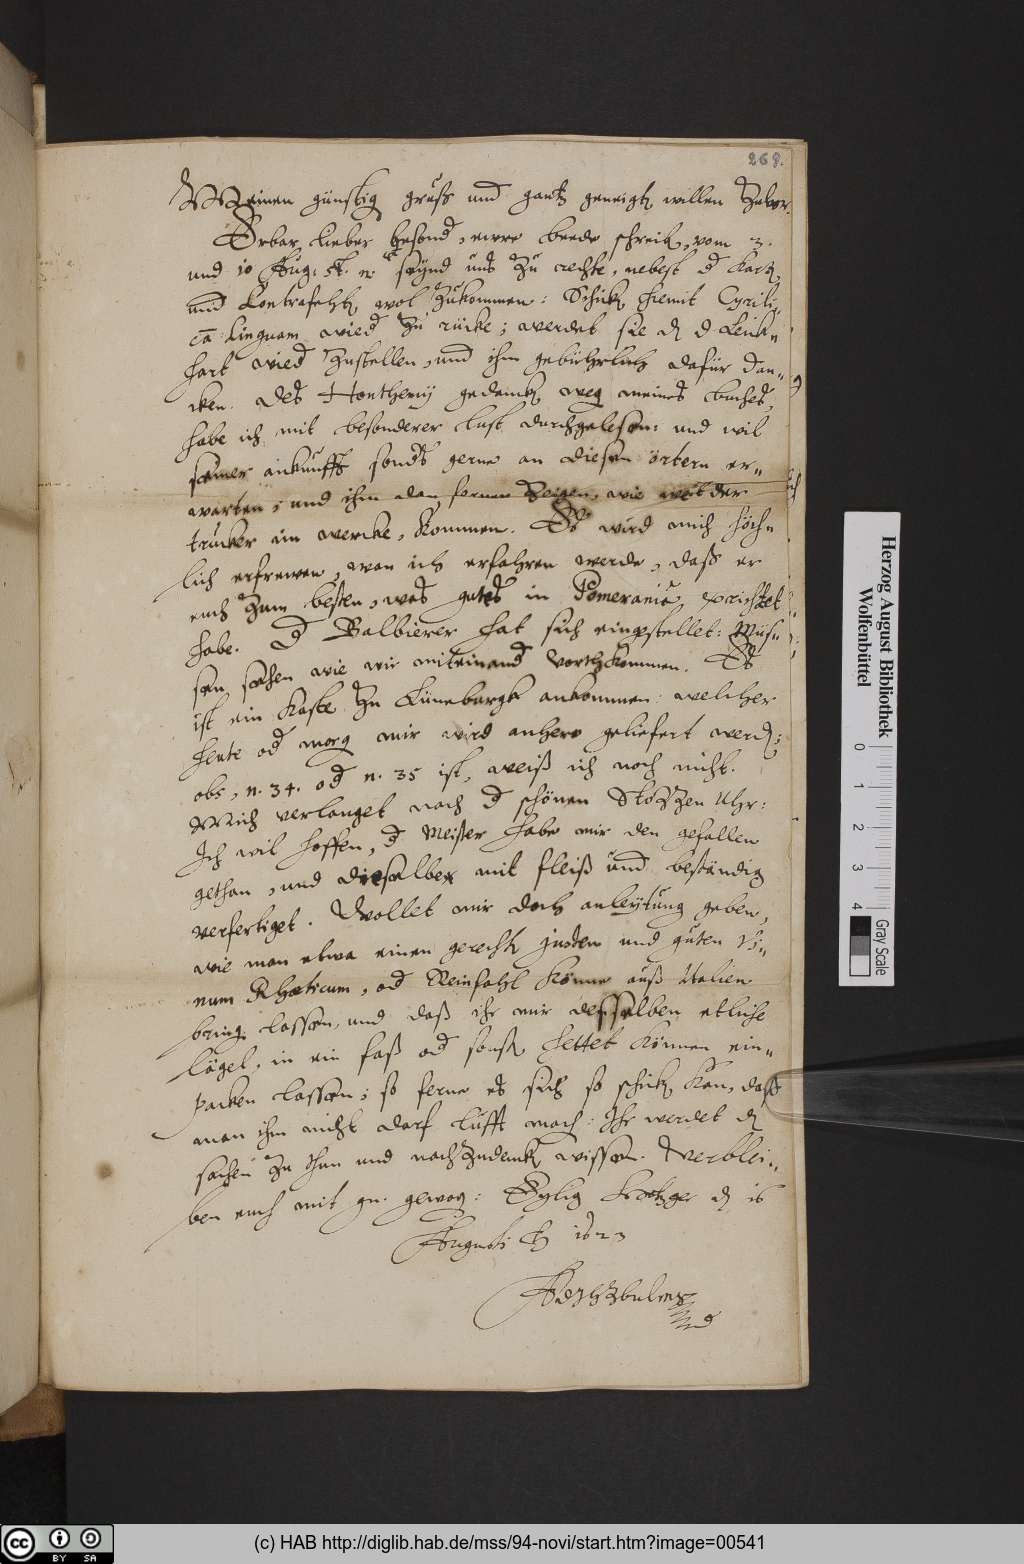 268.
Meinen günstig gruß und gantz geneigt willen Zuvor.
Erbar, lieber besond, ewre beede schreib, vom 3.
und 10 Aug: st. n. seynd uns zu rechte, nebest d Kart,
und Contrafeht, wol zukommen: Schick hiemit Cyrili-
cā Linguam wied zu rücke; werdet sie d d Leuk-
hart wied zustellen, und ihm gebührlich dafür dan-
cken. Des Hontheruj gedanck weg meines buches,
habe ich mit besonderer lust durchgelesen: und wil
seiner ankunfft sonds gerne an diesen örtern er-
warten; und ihm alda fernen Zeigen, wie weit der
trucker im wercke, kommen. Es wird mich höch-
lich erfrewen, wan ich erfahren werde, daß er
euch zum besten, was gutes in Pomeraniæ, verichtet
habe. D Balbierer hat sich eingestellet: Müs-
sen sehen wie wir miteinand vorthkommen. Es
ist ein Kaste zu Lüneburgk ankommen: welcher
heute od morg mir wird anhero geliefert werd;
obs, n. 34. od n. 35 ist, weiß ich noch nicht.
Mich verlanget nach d schönen StoZZen Uhr:
Ich wil hoffen, d Meister habe mir den gefallen
gethan, und dieselbe mit fleiß und beständig
verfertiget. Wollet mir doch anleytung geben,
wie man etwa einen gerecht, guten Vi-
num Rhæticum, od Reinfahl könne auß Italien
bring lassen, und daß ihr mir desselben etliche
lägel, in ein faß od sonst hettet können ein-
packen lassen; so ferne es sich so schick kan, daß
man ihm nicht darf lufft mach: Ihr werdet d
sachen zu thun und nachzudenck wissen. Verblei-
ben euch mit gn. gewog: Eylig Hitzger d 16
Augusti A 1623
AugustusHZBuLmp
Herzog August Bibliothek
Wolfenbüttel
0 1 2 3 4
Gray Scale
CC BY SA
(c) HAB http://diglib.hab.de/mss/94-novi/start.htm?image=00541